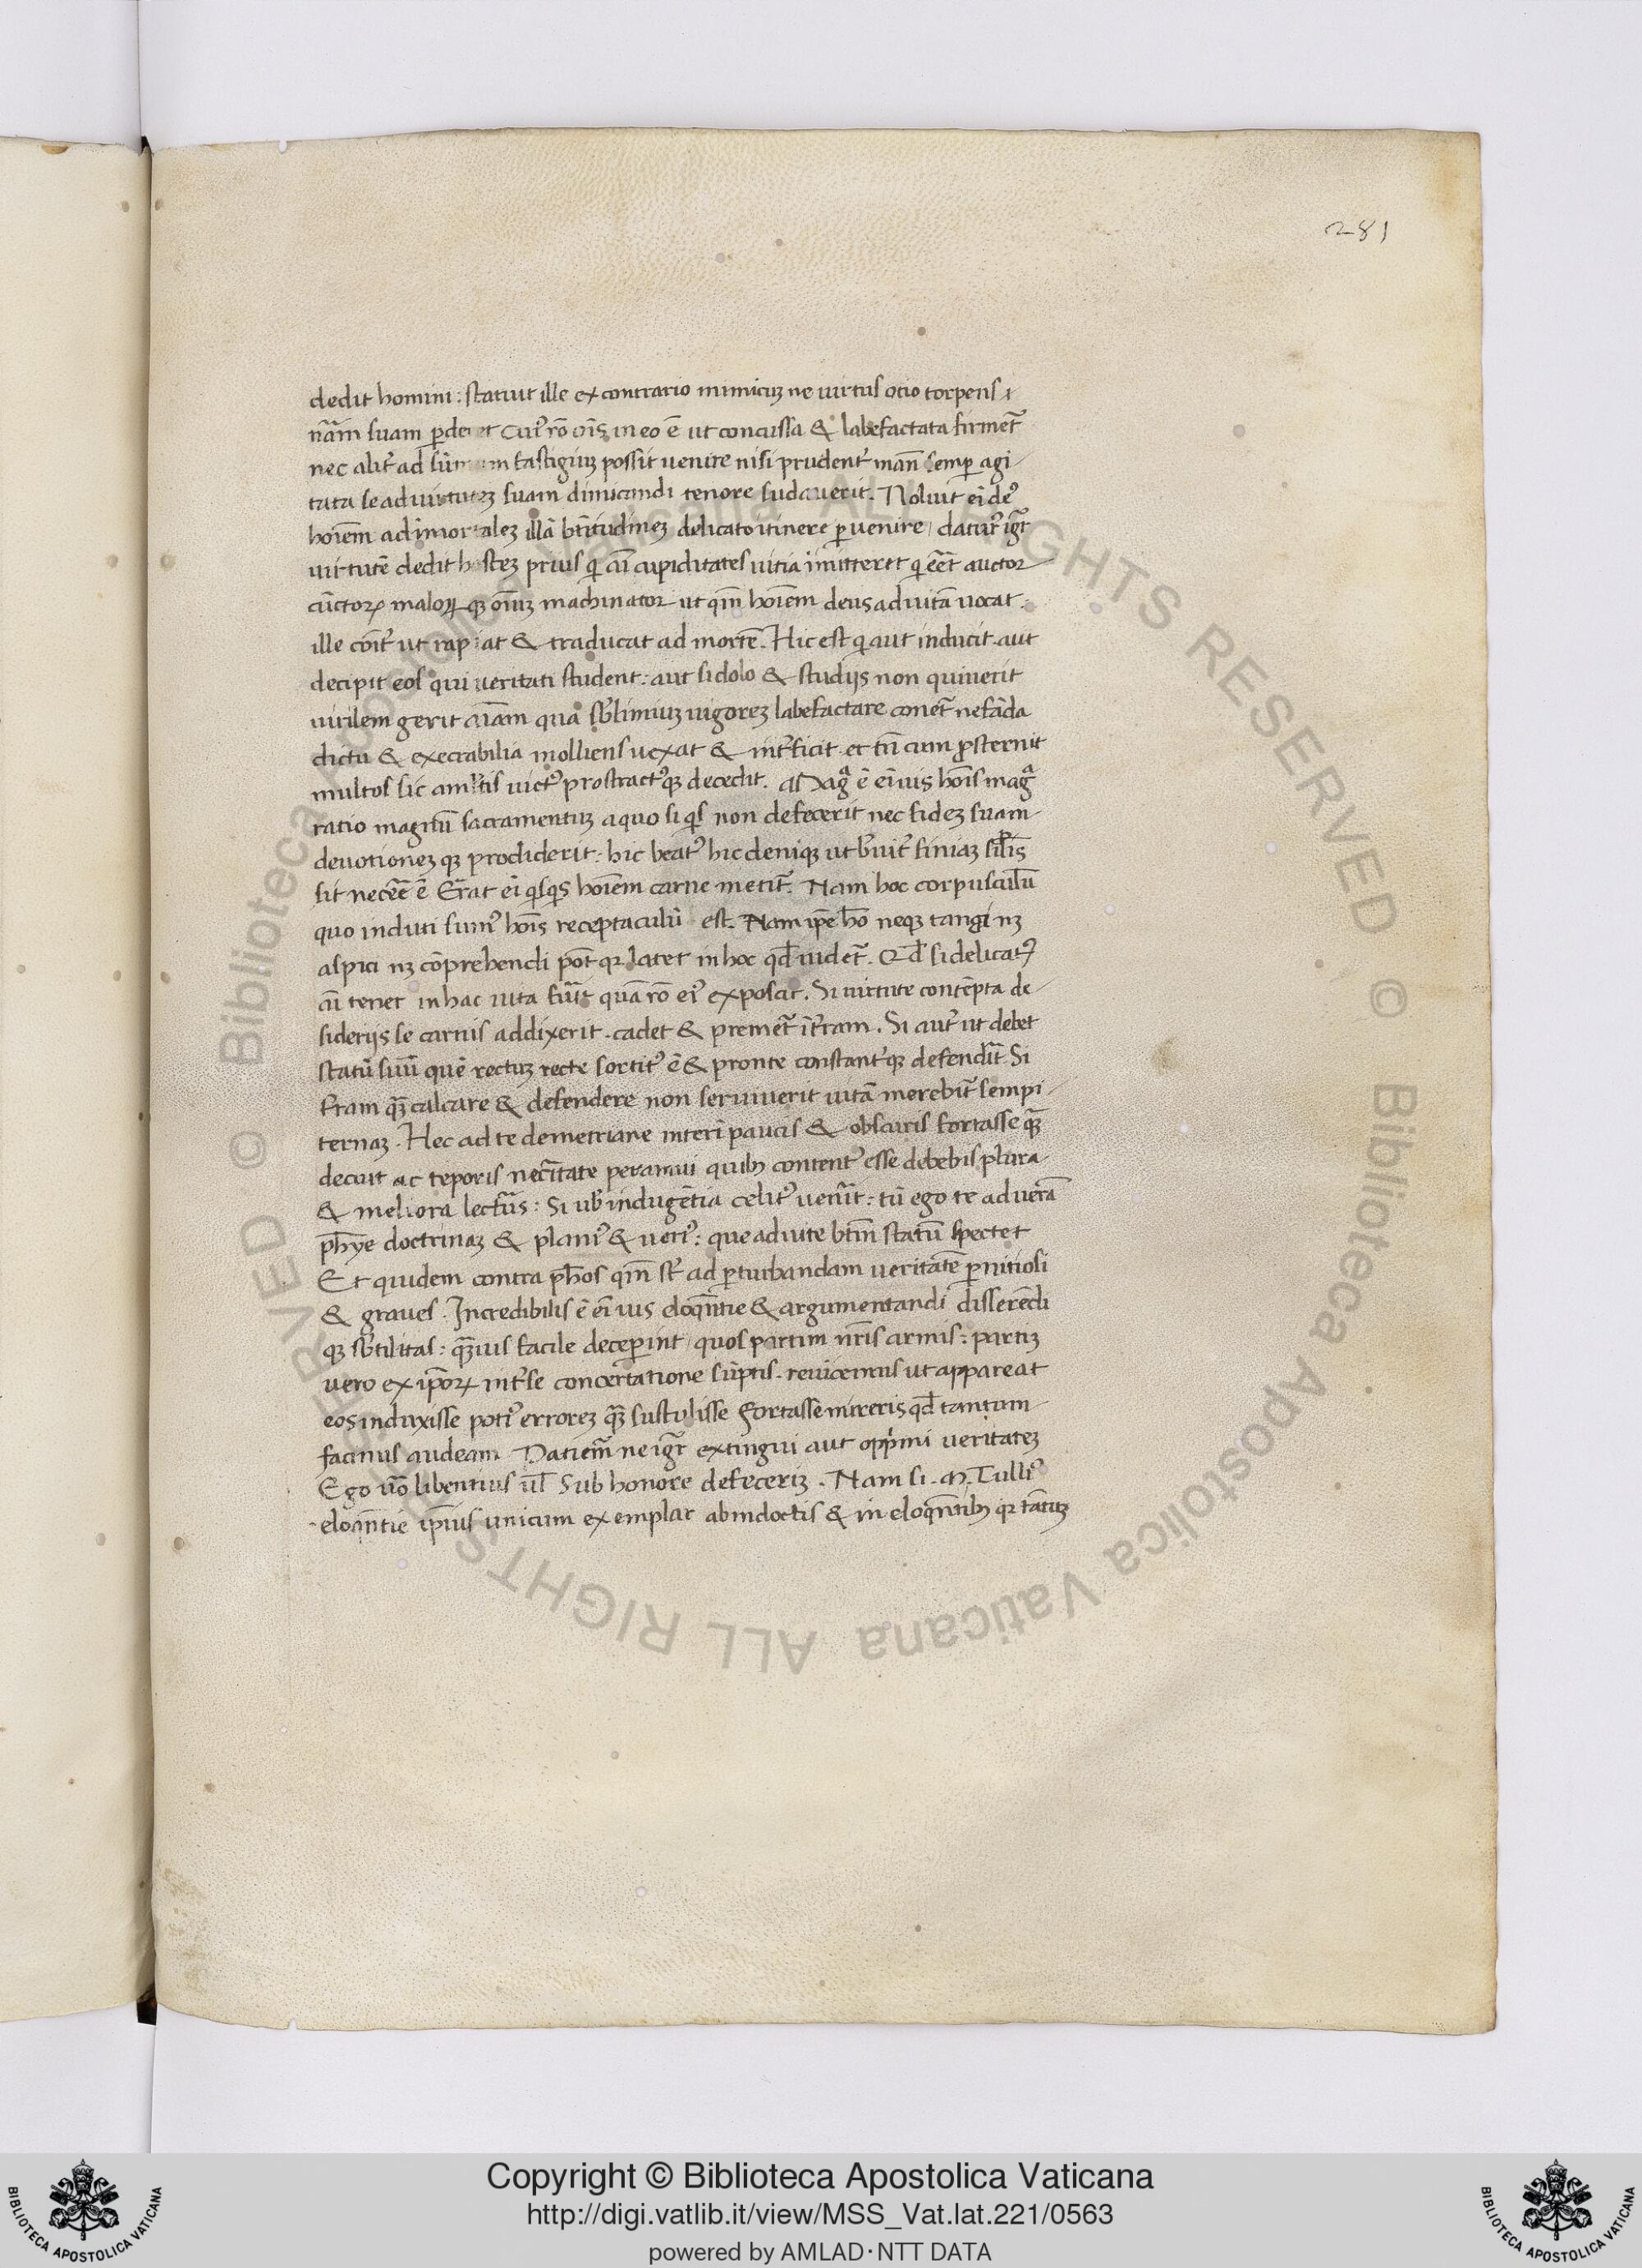 281
dedit homini: statuit ille ex contrario inimicuꝫ ne uirtus otio torpens ı
nr̄am suam ꝑderet cuiꝰ rō oı̄s in eo ē ut concussa & labefactata firmet᷑
nec alit᷑ ad fastigiuꝫ possit uenire nisi prudent᷑ semꝑ agi
tata se ad uirtuteꝫ suam dimicandi tenore sudauerit. Noluit eı̄ deꝰ
hoı̄em ad īmortaleꝫ illā btı̄tudineꝫ delicato itinere ꝑuenire / daturꝰ igr̄
uirtutē dedit hosteꝫ prius qi aı̄ı cupiditates uitia īmitteret qi eēt auctor
cūctoꝝ maloꝝ qꝫ oı̄uꝫ machinator ut qm̄ hoı̄em deus ad uitā uocat.
ille cōt᷑ ut rapiat & traducat ad mortē. Hic est qi aut inducit aut
decipit eos qui ueritati student: aut si dolo & studijs non quiuerit
uirilem gerit aı̄am qua sb̄limiuꝫ uigoreꝫ labefactare conet᷑ nefāda
dictu & execrabilia molliens uexat & int᷑ficit et tn̄ cum ꝓsternit
multos sic uictꝰ prostractꝰqꝫ decedit. Magª ē eı̄ uis hoı̄s magª
ratio magnū sacramentuꝫ a quo si qis non defecerit nec fideꝫ suam
deuotioneꝫ qꝫ prodiderit: hic beatꝰ hic deniqꝫ ut finiaꝫ sil̄is
sit necēe ē Errat eı̄ qisqis hoı̄em carne metit᷑. Nam hoc corpusculū
quo induti sumꝰ hoı̄s receptaculū est. Nam ip̄e hō neqꝫ tangi nꝫ
aspici nꝫ cōprehendi pōt qꝛ latet in hoc qd̄ uidet᷑. Qd̄ si delicatꝰ
aı̄ı tener in hac uita fūit quā rō eiꝰ exposcit. Si uirtute contēpta de
siderijs se carnis addixerit. cadet & premet᷑ ī t᷑ram. Si aut᷑ ut debet
statū suū quē rectuꝫ recte sortitꝰ ē & pronte constant᷑qꝫ defendit. Si
t᷑ram qꝫ calcare & defendere non seruiuerit uitā merebit᷑ sempi
ternaꝫ. Hec ad te demetriane interī paucis & obscuris fortasse qꝫ
decuit ac tēporis necı̄tate peraniui quibꝫ contentꝰ esse debebis plura
& meliora lectūs: Si nob̄ indugētia celitꝰ uenit: tū ego te ad uerā
ph̄ye doctrinaꝫ & planiꝰ & ueriꝰ: que ad uite btm̄ statū spectet
Et quidem contra ph̄os qm̄ st̄ ad ꝑturbandam ueritatē ꝑnitiosi
& graues. Incredibilis ē eı̄ uis eloqn̄tie & argumentandi disserēdi
qꝫ sb̄tilitas: qꝫuis facile deceperint / quos partim nr̄is armis: partiꝫ
uero ex ip̄oꝝ int᷑ se concertatione sūptis. reuicemus ut appareat
eos induxisse potiꝰ erroreꝫ qꝫ sustulisse Fortasse mireris qd̄ tantum
facinus audeam Patiem̄ ne igr̄ extingui aut opp̄mi ueritateꝫ
Ego uō libentius ul̄ sub honore defeceriꝫ. Nam si. M. Tulliꝰ
eloqn̄tie ip̄ius unicum exemplar ab indoctis & in eloqn̄tibꝫ qꝛ tātuꝫ
Copyright © Biblioteca Apostolica Vaticana
http://digi.vatlib.it/view/MSS_Vat.lat.221/0563
powered by AMLAD·NTT DATA
BIBLIOTECA APOSTOLICA VATICANA
BIBLIOTECA APOSTOLICA VATICANA
© Biblioteca Apostolica Vaticana ALL RIGHTS RESERVED
© Biblioteca Apostolica Vaticana ALL RIGHTS RESERVED